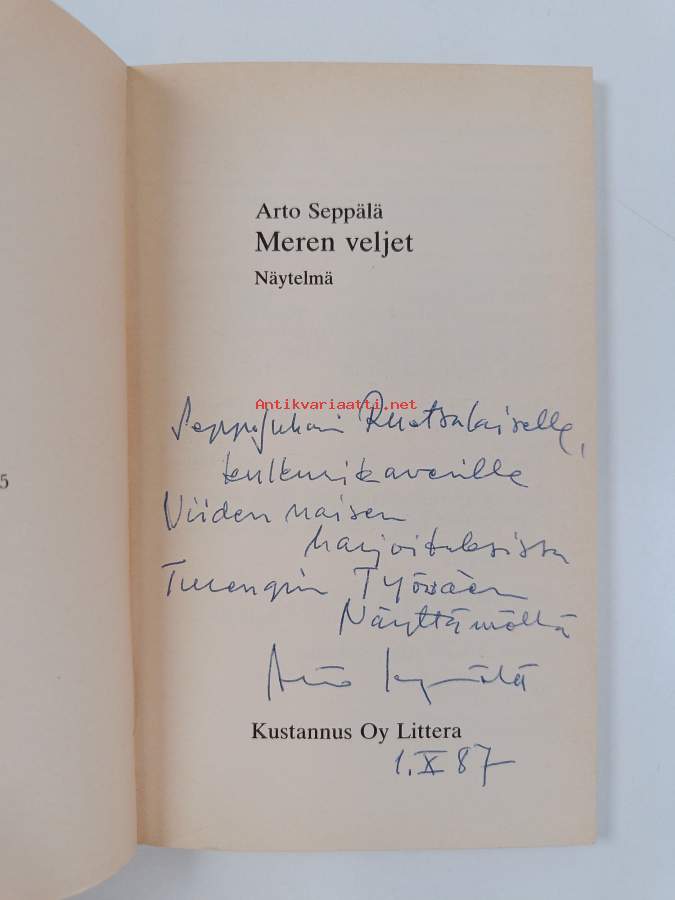 5
Arto Seppälä
Meren veljet
Näytelmä
Antikvariaatti.net
Seppo Juhani Ruotsalaiselle,
kulkurikaverille
Viiden naisen
harjoituksissa
Turengin Työväen
Näyttämöllä
Arto Seppälä
Kustannus Oy Littera
1.X 87